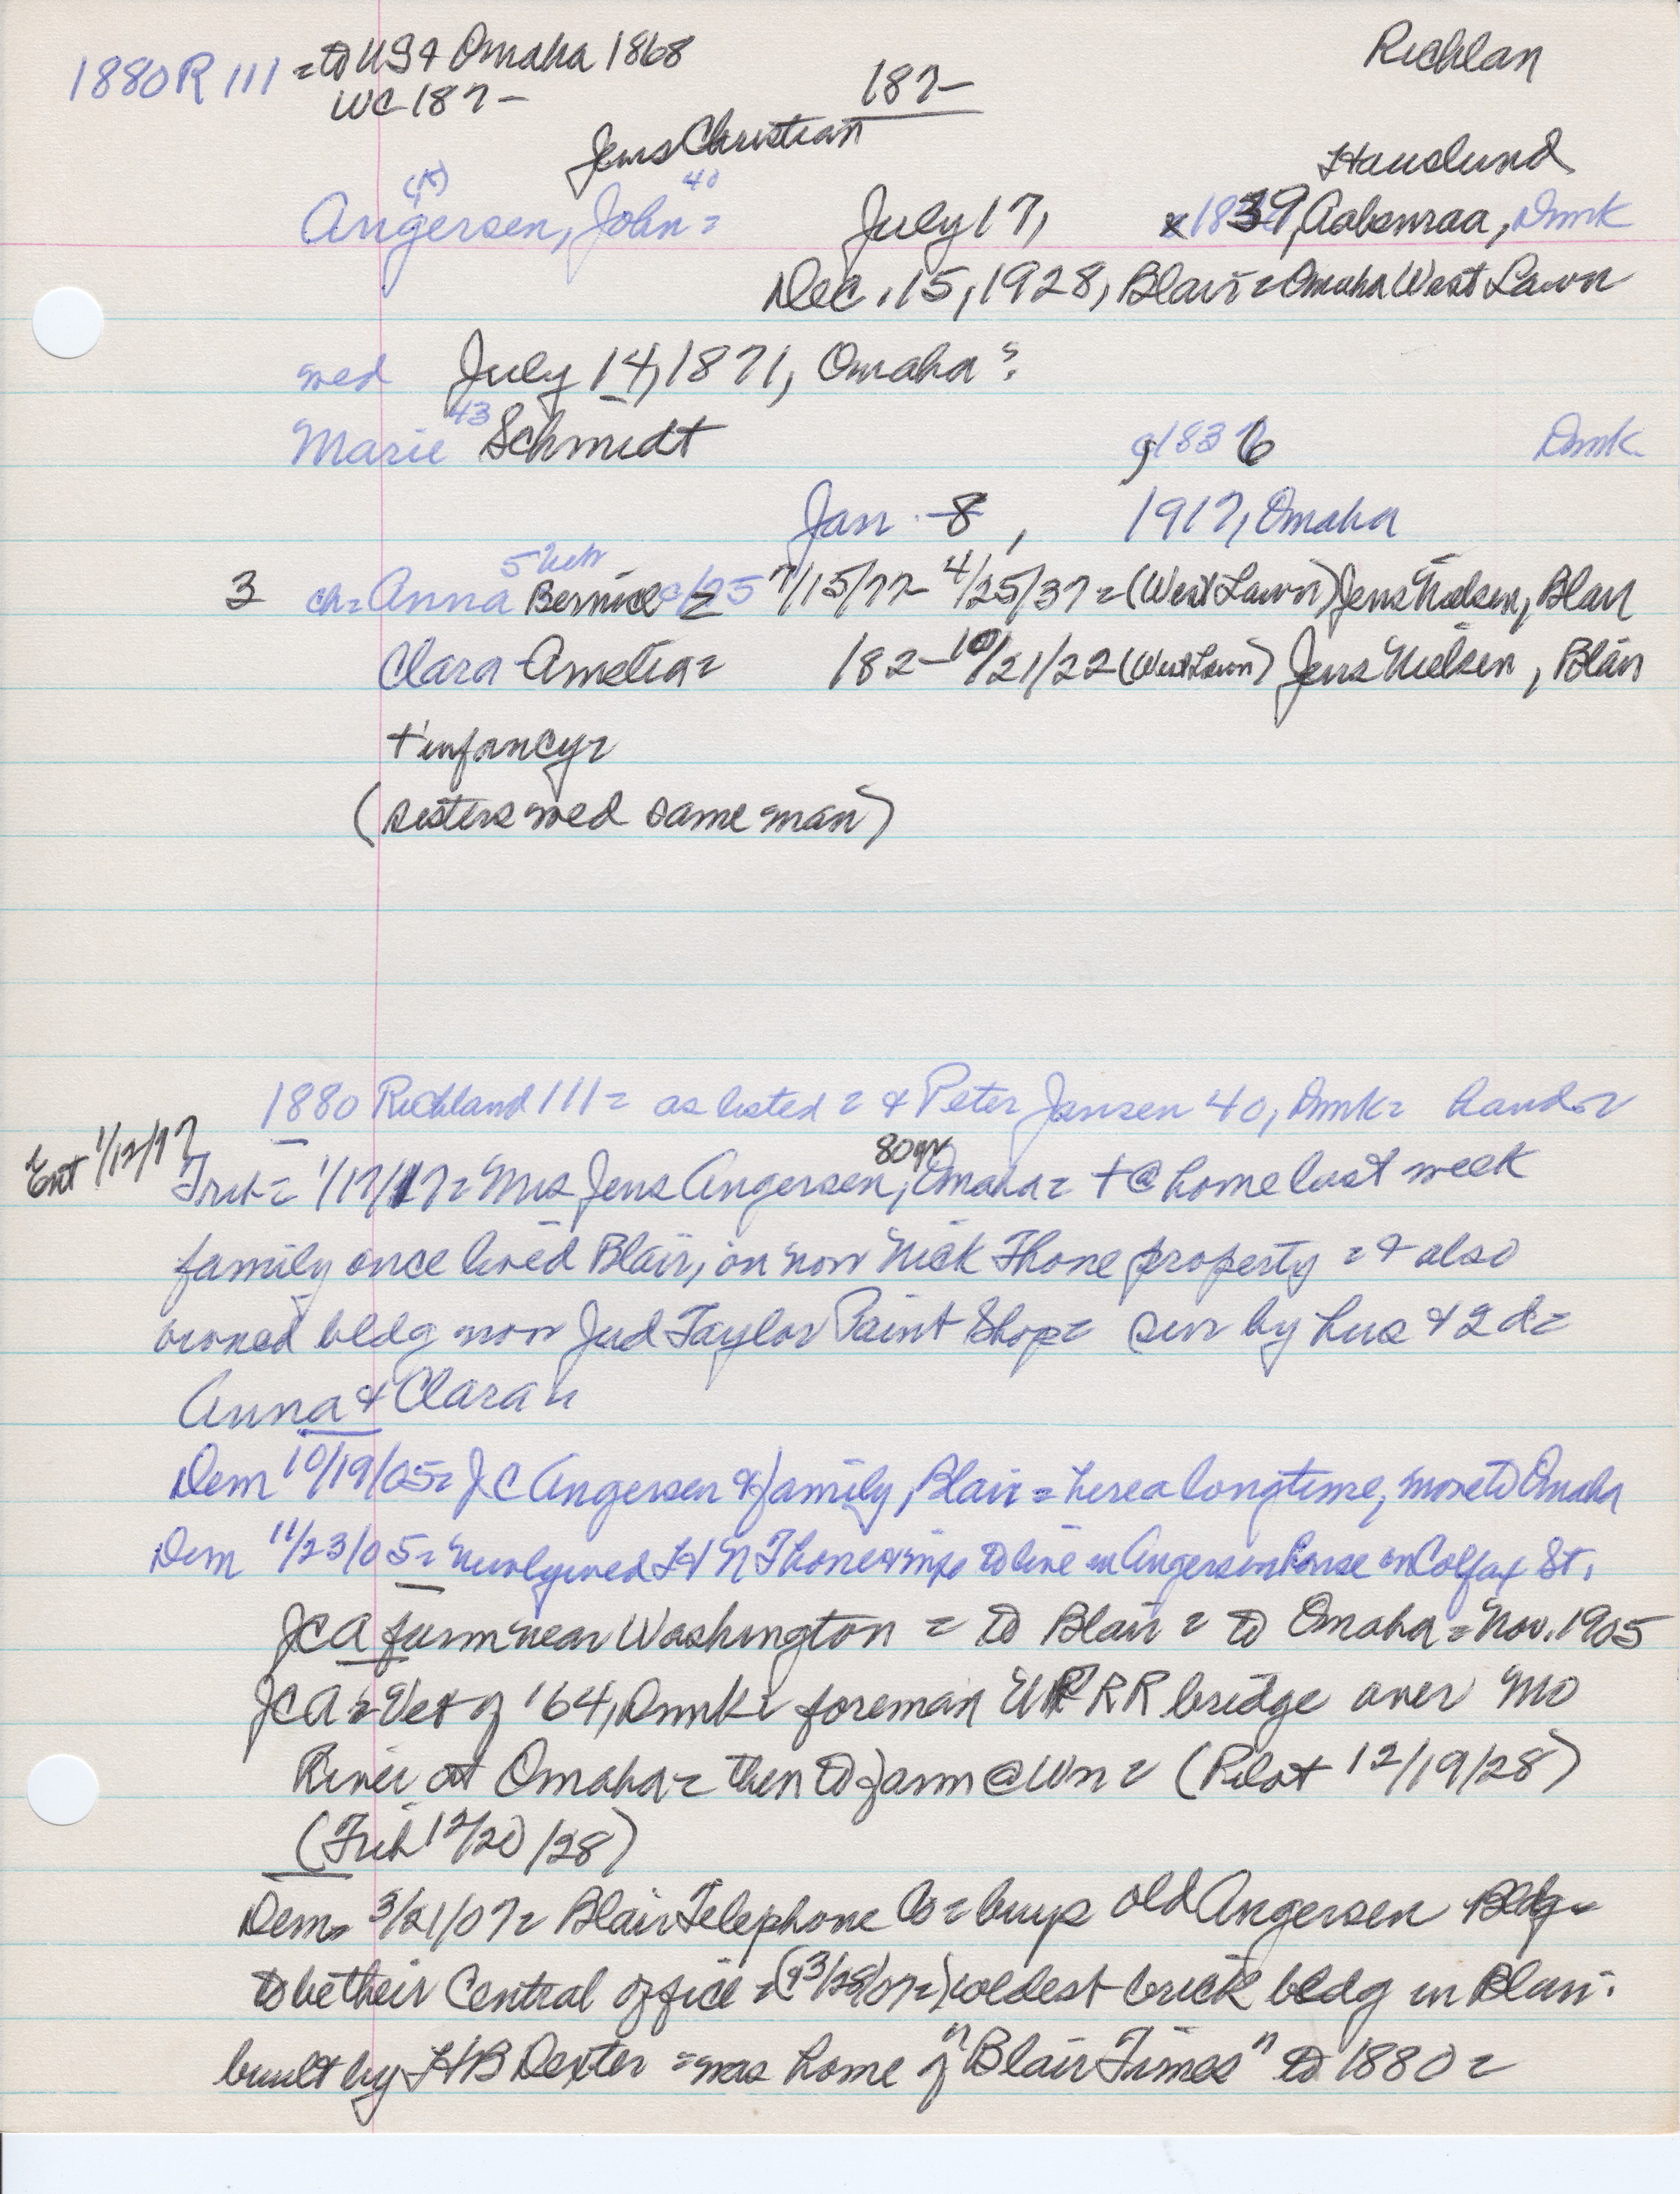 1880 R 111 = to US & Omaha 1868
WC 187-
187-
Richlan
Jens Christian
Hauslund
(K) 40
Angersen, John = July 17, x 1839, Aabenraa, Dmk
Dec. 15, 1928, Blair = Omaha West Lawn
wed July 14, 1871, Omaha?
43
Marie Schmidt 1836 Dmk
Jan. 8, 1917, Omaha
3 ch = Anna Bernice = 7/15/77 - 4/25/37 = (West Lawn) Jens Nielsen, Blair
Clara Amelia = 182 - 10/21/22 (West Lawn) Jens Nielsen, Blair
+ infancy =
(sisters wed same man)
1880 Richland 111 = as listed = & Peter Jansen 40, Dmk =
Ent 1/12/17
80 yr
1/17/17 = Mrs Jens Angersen, Omaha = + @ home last week
family once lived Blair, on now Nick Thone property = & also
owned bldg now Jud Taylor Paint Shop = sur by hus & 2 d =
Anna & Clara =
Dem 10/19/05 = J C Angersen & family, Blair = here a long time, move to Omaha
Dem 11/23/05 = newlywed H N Thone & wife to live in Angersen house on Colfax St.
JCA farm near Washington = to Blair = to Omaha = Nov. 1905
JCA = Vet of '64, Dmk = foreman UP RR bridge over Mo
River at Omaha = then to farm @ Wn = (Pilot 12/19/28)
(Trib 12/20/28)
Dem = 3/21/07 = Blair Telephone Co = buys old Angersen Bldg =
to be their Central office = (3/28/07 =) oldest brick bldg in Blair.
built by HB Dexter = was home of "Blair Times" to 1880 =